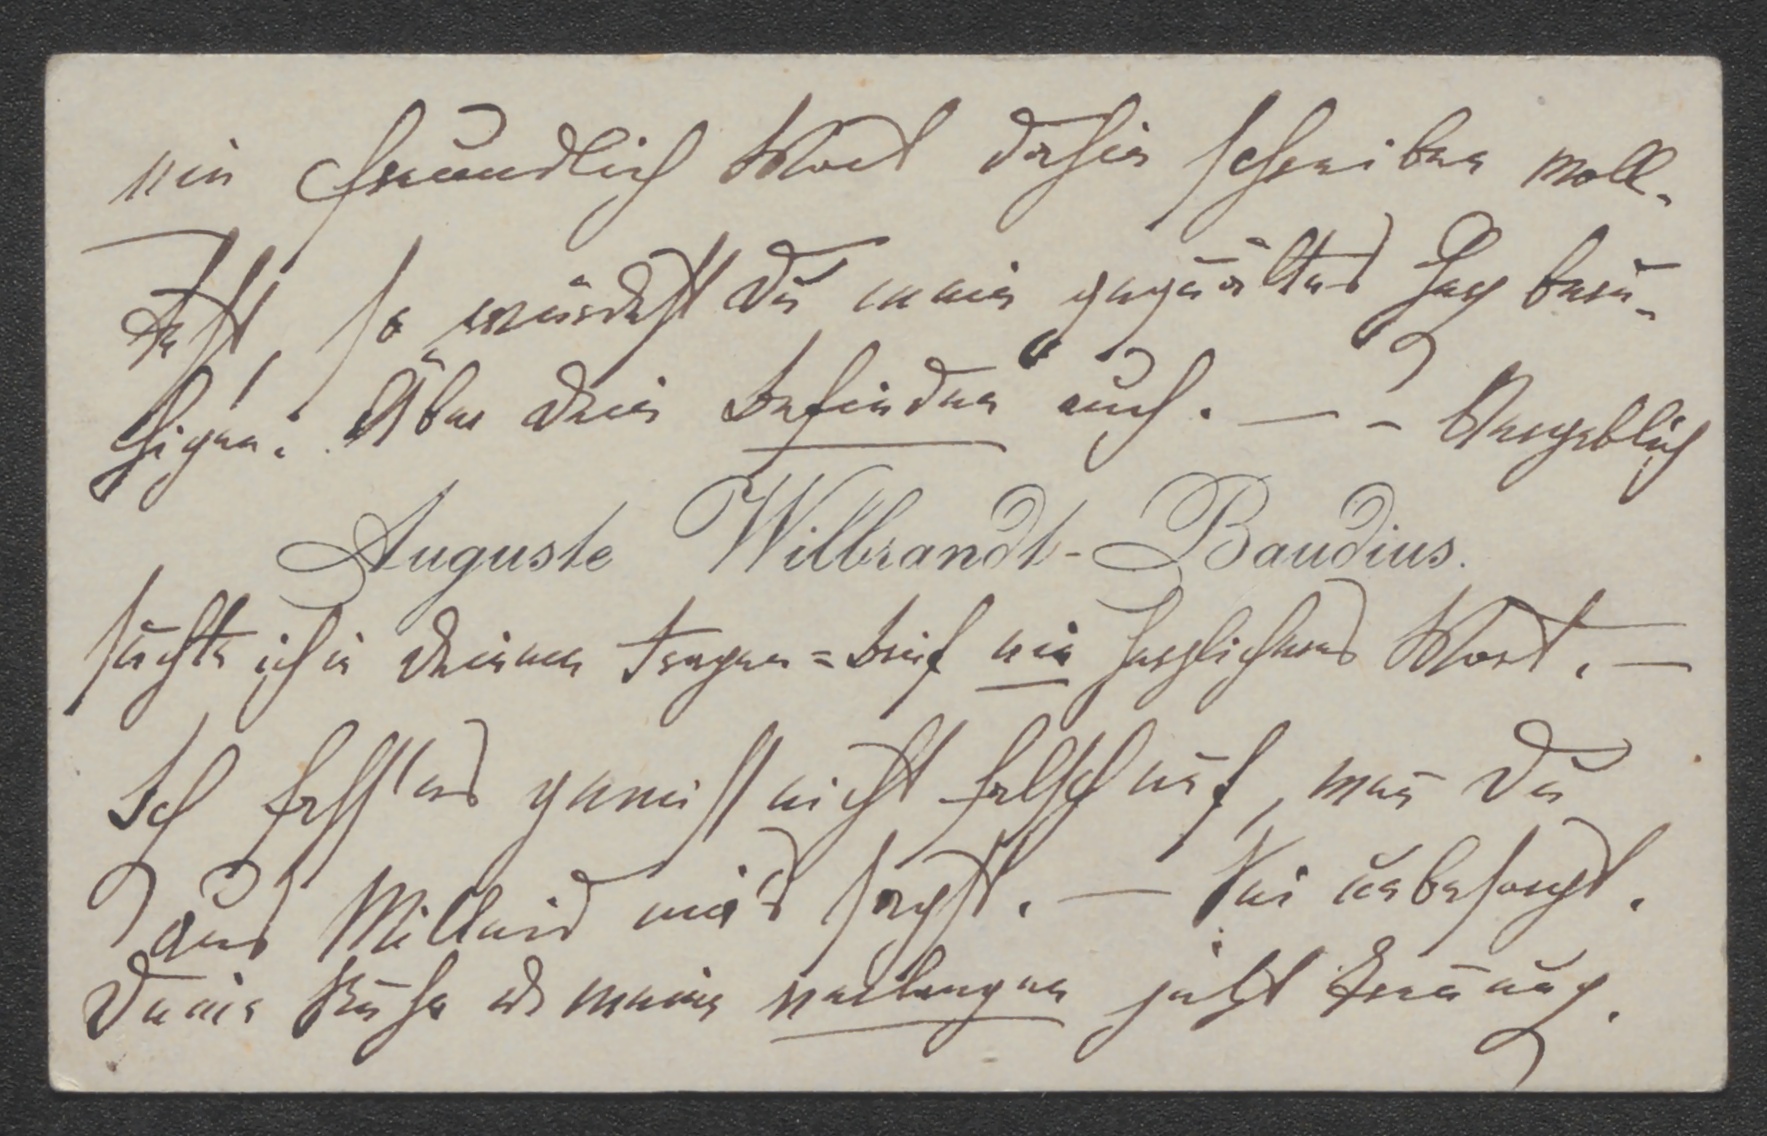 ein freundlich Wort dahin schreiben woll-
test, so würdest Du mein gequältes Herz beru-
higen. Über Dein Befinden auch. — – Vergeblich
Auguste Wilbrandt-Baudius.
suchte ich in Deinem Fragen=Brief ein herzlicheres Wort. —
Ich fass' es gewiss nicht falsch auf, was Du
aus Mitleid mir's sagst. — Sei unbesorgt.
Deine Ruhe u meine verlangen jetzt Trennung.